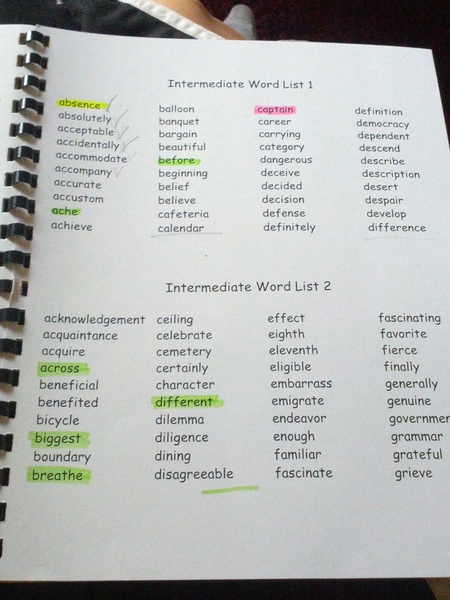 Intermediate Word List 1
absence balloon captain definition
absolutely banquet career democracy
acceptable bargain carrying dependent
accidentally beautiful category descend
accommodate before dangerous describe
accompany beginning deceive description
accurate belief decided desert
accustom believe decision despair
ache cafeteria defense develop
achieve calendar definitely difference
Intermediate Word List 2
acknowledgement ceiling effect fascinating
acquaintance celebrate eighth favorite
acquire cemetery eleventh fierce
across certainly eligible finally
beneficial character embarrass generally
benefited different emigrate genuine
bicycle dilemma endeavor governmen
biggest diligence enough grammar
boundary dining familiar grateful
breathe disagreeable fascinate grieve